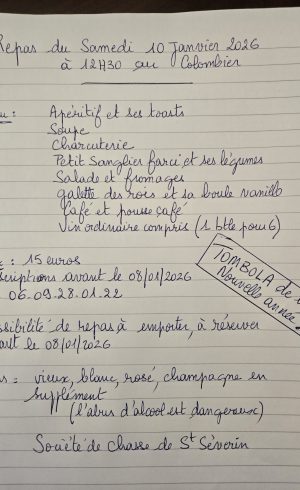 Repas du Samedi 10 Janvier 2026
à 12H30 au Colombier
u : Apéritif et ses toasts
Soupe
Charcuterie
Petit Sanglier farci et ses légumes
Salade et fromages
galette des rois et sa boule vanille
Café et pousse café
Vin ordinaire compris (1 btle pour 6)
: 15 euros
scriptions avant le 08/01/2026
06.09.28.01.22
TOMBOLA de
Nouvelle année
ssibilité de repas à emporter, à réserver
ant le 08/01/2026
s = vieux, blanc, rosé, champagne en
supplément
(l'abus d'alcool est dangereux)
Société de Chasse de St Séverin